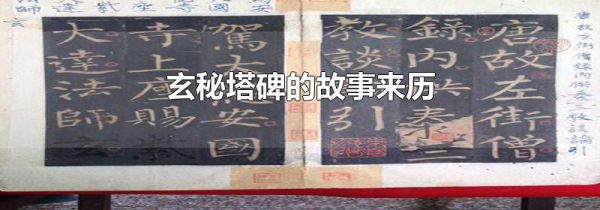 玄秘塔碑的故事来历
唐故左街僧
錄內供奉三
教談引
駕大安國
寺上座賜紫
大達法師玄
唐故左街僧錄內供奉三教談論引